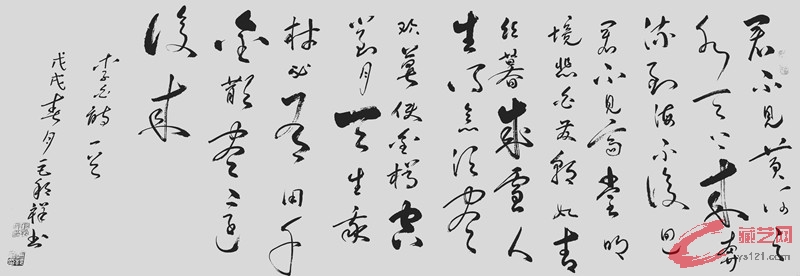 君不见黄河之
水天上来奔
流到海不复回
君不见高堂明
镜悲白发朝如青
丝暮成雪人
生得意须尽
欢莫使金樽空
对月天生我
材必有用千
金散尽还
复来
李白诗一首
戊戌春月毛祥书
藏艺网
ys121.com